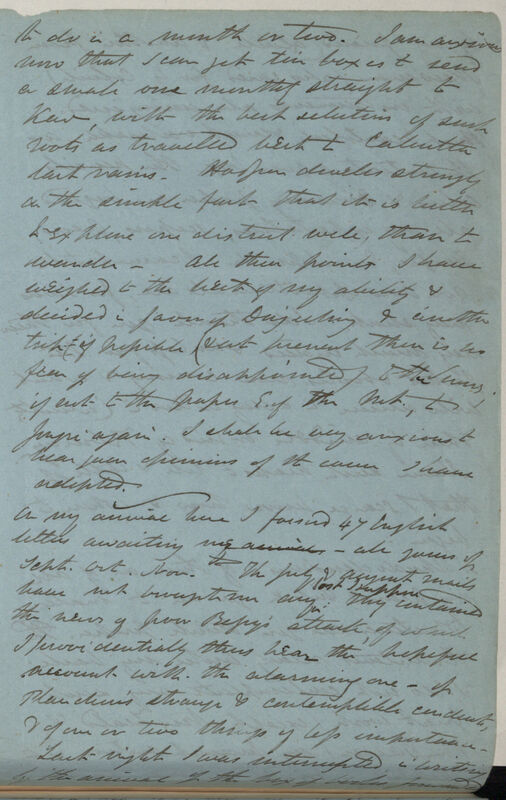 to do in a month or two. I am anxious
now that I can get tin boxes to send
a small one monthly straight to
Kew, with the best selection of such
roots as travelled best to Calcutta
last rains. Hodgson dwells strongly
on the simple fact that it is better
to explore one district well, than to
wander — All these points I have
weighed to the best of my ability &
decided in favor of Darjeeling & another
trip if possible (& at present there is no
fear of being disappointed) to the Snows,
if not to the passes E. of the
Jongri again. I shall be very anxious to
hear your opinions of the course I have
adopted.
On my arrival here I found 47 English
letters awaiting me — all yours of
Sept. Oct. Nov. The July & August mails
have not overtaken me they contained
the news of poor Bessy's attack, of which
I providentially thus hear the hopeful
account with the alarming one — of
Planchon's strange & contemptible conduct,
& of one or two things of less importance —
Last night I was interrupted in writing
by the arrival of the box of books,